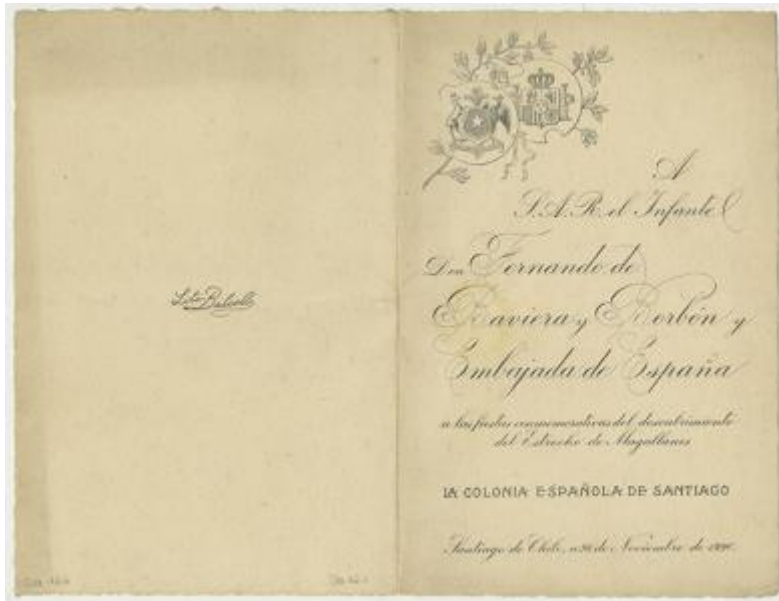 A
S. A. R. el Infante
Don Fernando de
Baviera y Borbón y
Embajada de España
a las fiestas conmemorativas del descubrimiento
del Estrecho de Magallanes
LA COLONIA ESPAÑOLA DE SANTIAGO
Santiago de Chile, de Noviembre de